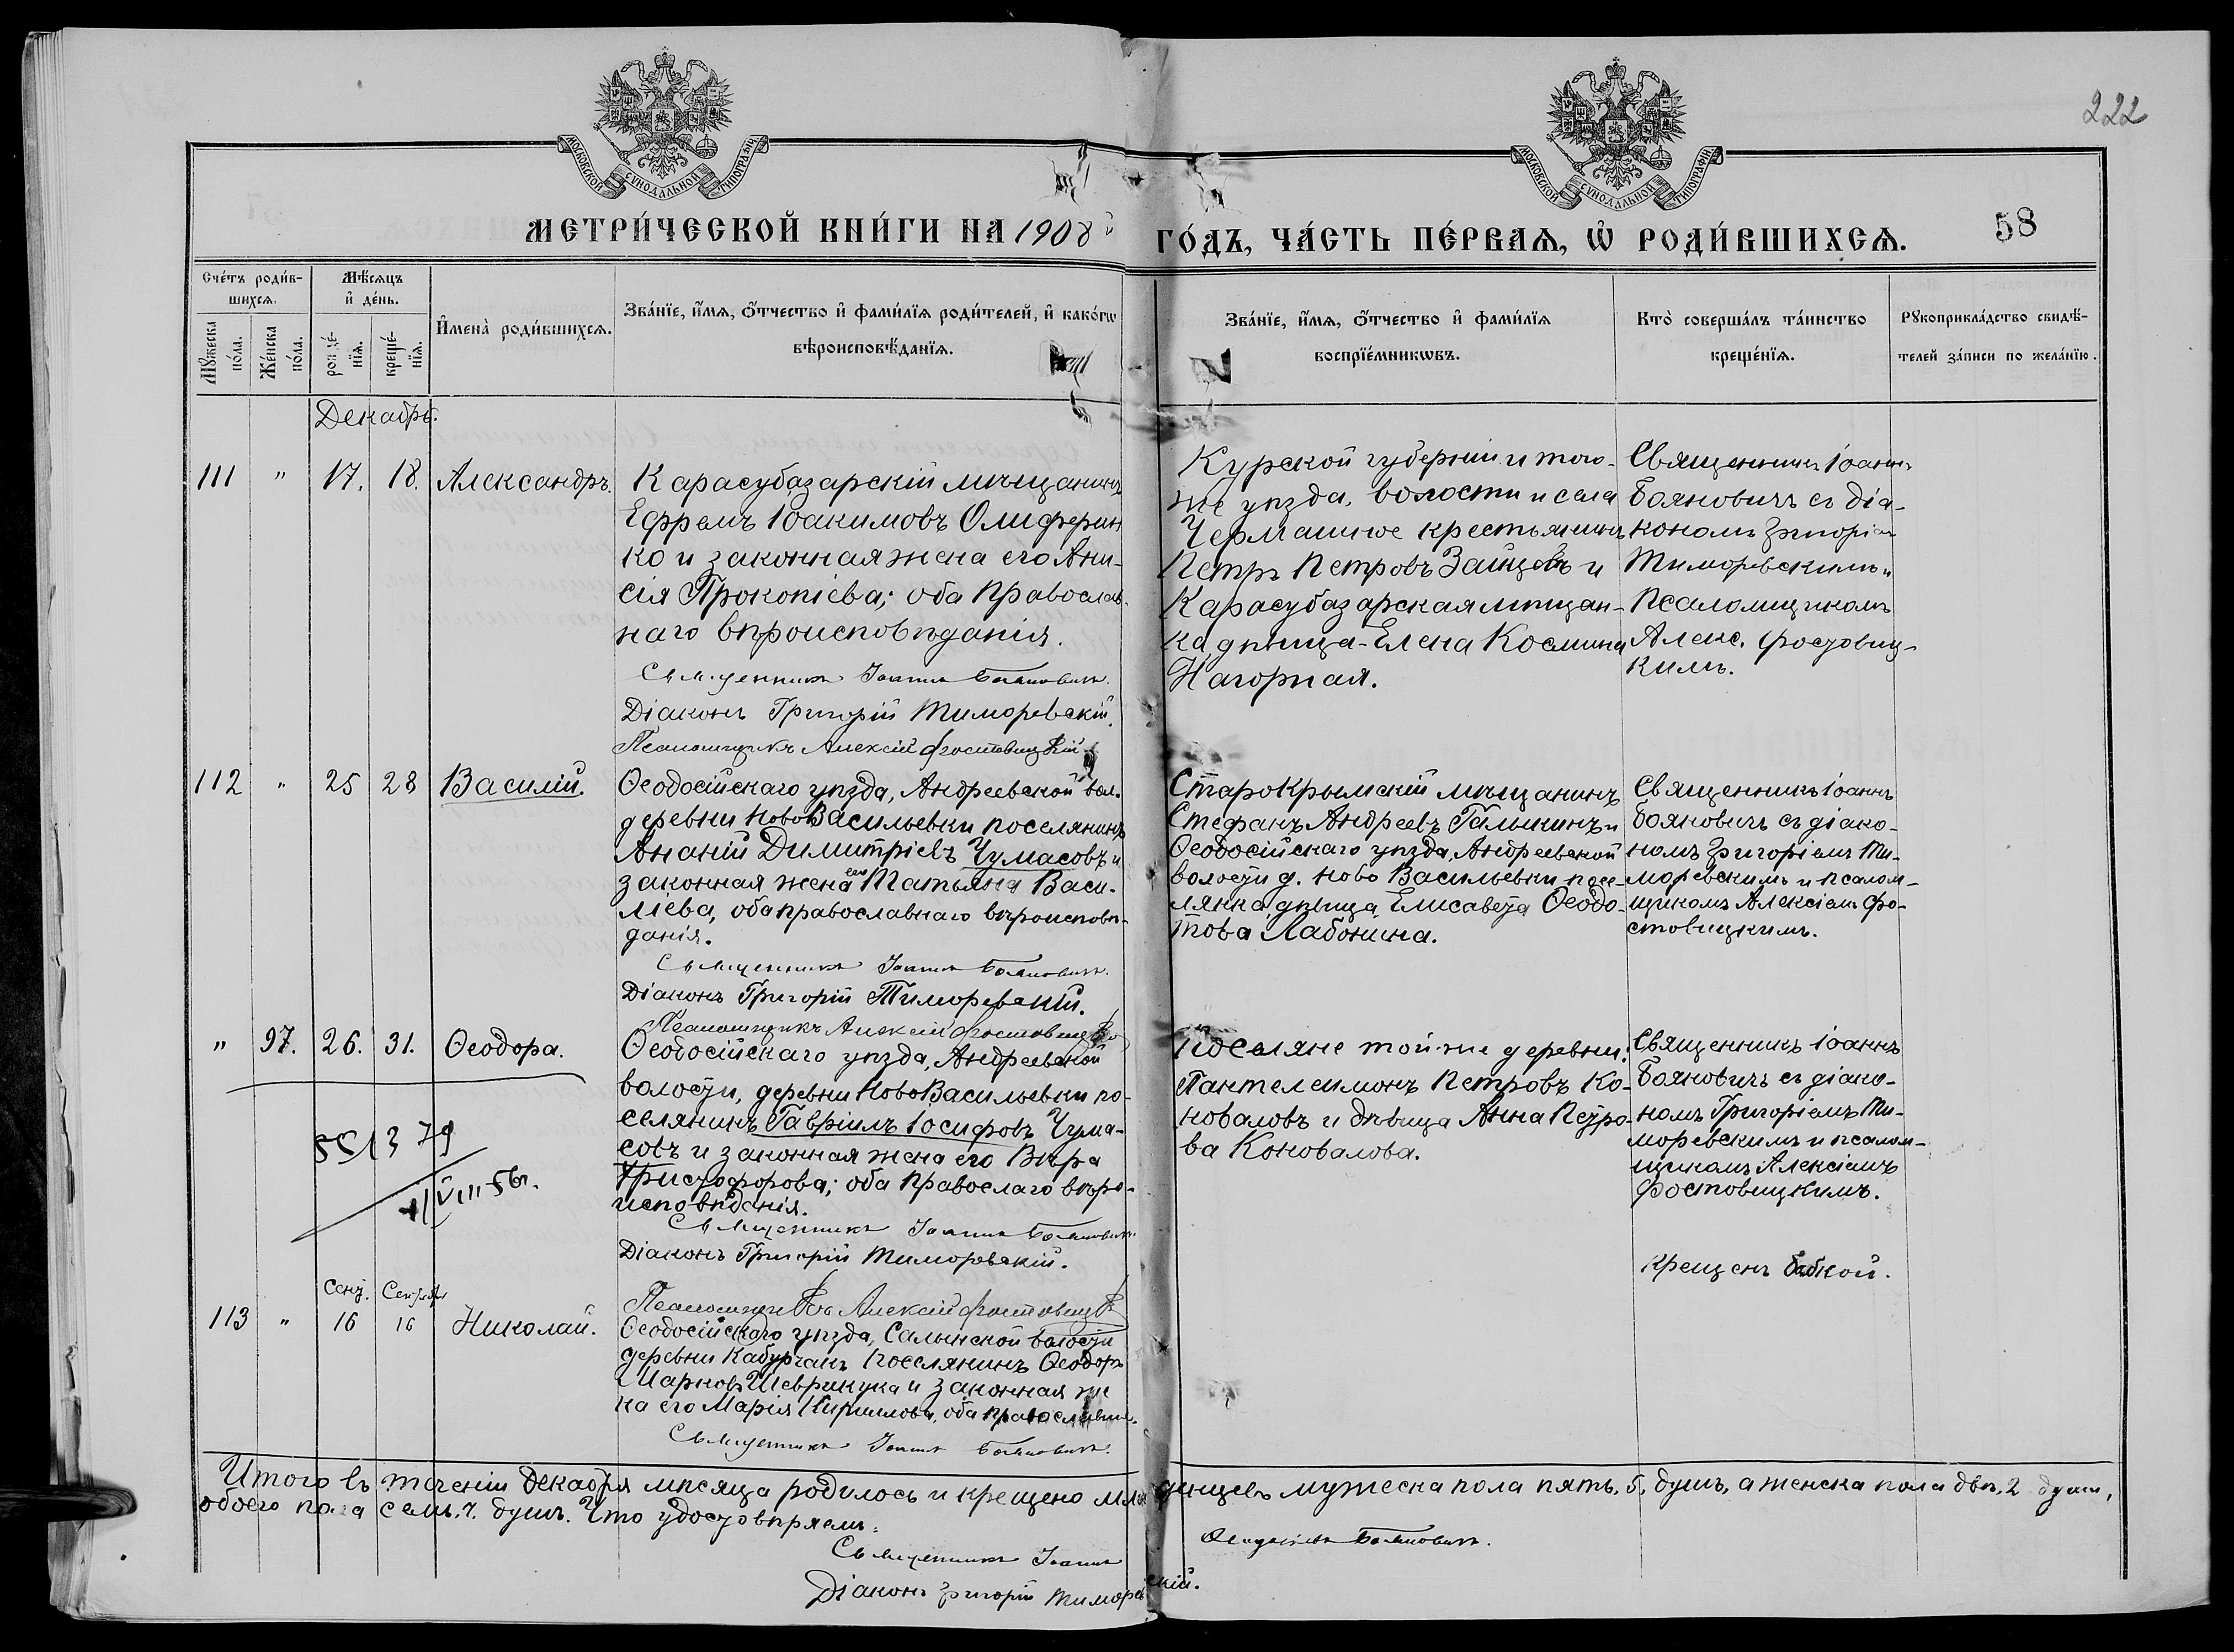 222
МОСКОВСКОЙ СѴНОДАЛЬНОЙ ТИПОГРАФІИ
МОСКОВСКОЙ СѴНОДАЛЬНОЙ ТИПОГРАФІИ
МЕТРИ́ЧЕСКОЙ КНИ́ГИ НА 1908й ГО́ДЪ, ЧА́СТЬ ПЕ́РВАѦ, Ѡ҆ РОДИ́ВШИХСѦ.
58
Сче́тъ роди́в-
шихсѧ.
Мꙋ́жеска по́ла.
Же́нска по́ла.
Мѣ́сѧцъ
и҆ де́нь.
рожде́-
нїѧ.
креще́-
нїѧ.
И҆мена̀ роди́вшихсѧ.
Зва́нїе, и҆́мѧ, ѻ҆́тчество и҆ фами́лїѧ роди́телей, и҆ како́гѡ
вѣроисповѣ́данїѧ.
Зва́нїе, и҆́мѧ, ѻ҆́тчество и҆ фами́лїѧ
воспрїе́мникѡвъ.
Кто̀ соверша́лъ та́инство
креще́нїѧ.
Рꙋкоприкла́дство свидѣ́-
телей за́писи по жела́нїю.
Декабрь.
111 " 17. 18. Александръ.
Карасубазарскій мѣщанинъ
Ефремъ Іоакимовъ Олиферен
ко и законная жена его Ани-
сія Прокопіева; оба Православ-
наго вѣроисповѣданія.
Священникъ Іоаннъ Бояновичъ.
Діаконъ Григорій Тиморевскій.
Псаломщикъ Алексій Фостовицкій
Курской губерніи и того-
же уѣзда, волости и села
Чермашное крестьянинъ
Петръ Петровъ Зайцевъ и
Карасубазарская мѣщан-
ка дѣвица-Елена Космина
Нагорная.
Священникъ Іоаннъ
Бояновичъ съ діа-
кономъ Григоріемъ
Тиморевскимъ и
Псаломщикомъ
Алекс. Фостовиц-
кимъ.
112 " 25 28 Василій.
Ѳеодосійскаго уѣзда, Андреевской вол.
деревни НовоВасильевки поселянинъ
Ананій Димитріевъ Чумасовъ и
законная жена его Татьяна Васи-
ліева, оба православнаго вѣроисповѣ-
данія.
Священникъ Іоаннъ Бояновичъ.
Діаконъ Григорій Тиморевскій.
Псаломщикъ Алексій Фостовицкій
СтароКрымскій мѣщанинъ
Стефанъ Андреевъ Галыкинъ и
Ѳеодосійскаго уѣзда, Андреевской
волости д. Ново Васильевки посе-
лянка, дѣвица Елисавета Ѳеодо-
това Лабонина.
Священникъ Іоаннъ
Бояновичъ съ діако-
номъ Григоріемъ Ти-
моревскимъ и псалом-
щикомъ Алексіемъ Фо-
стовицкимъ.
" 97. 26. 31. Ѳеодора.
Ѳеодосійскаго уѣзда, Андреевской
волости, деревни НовоВасильевки по-
селянинъ Гавріилъ Іосифовъ Чума-
совъ и законная жена его Вѣра
Христофорова; оба Православаго вѣро-
исповѣданія.
Священникъ Іоаннъ Бояновичъ
Діаконъ Григорій Тиморевскій.
Псаломщикъ Алексій Фостовицкій
Поселяне той-же деревни:
Пантелеимонъ Петровъ Ко-
новаловъ и дѣвица Анна Петро-
ва Коновалова.
Священникъ Іоаннъ
Бояновичъ съ діако-
номъ Григоріемъ Ти-
моревскимъ и псалом-
щикомъ Алексіемъ
Фостовицкимъ.
VIII-56г.
Сент. Сентября
113 " 16 16 Николай.
Ѳеодосійскаго уѣзда, Салынской волости
деревни Кабурчакъ поселянинъ Ѳеодоръ
Марковъ Шеврикука и законная же
на его Марія Кириллова, оба православн.
Священникъ Іоаннъ Бояновичъ.
Крещенъ бабкой.
Итого въ теченіи декабря мѣсяца родилось и крещено младенцевъ мужеска пола пять, 5, душъ, а женска пола двѣ, 2 души,
обоего пола семь, 7, душъ. Что удостовѣряемъ:
Священникъ Іоаннъ Бояновичъ.
Діаконъ Григорій Тиморевскій.